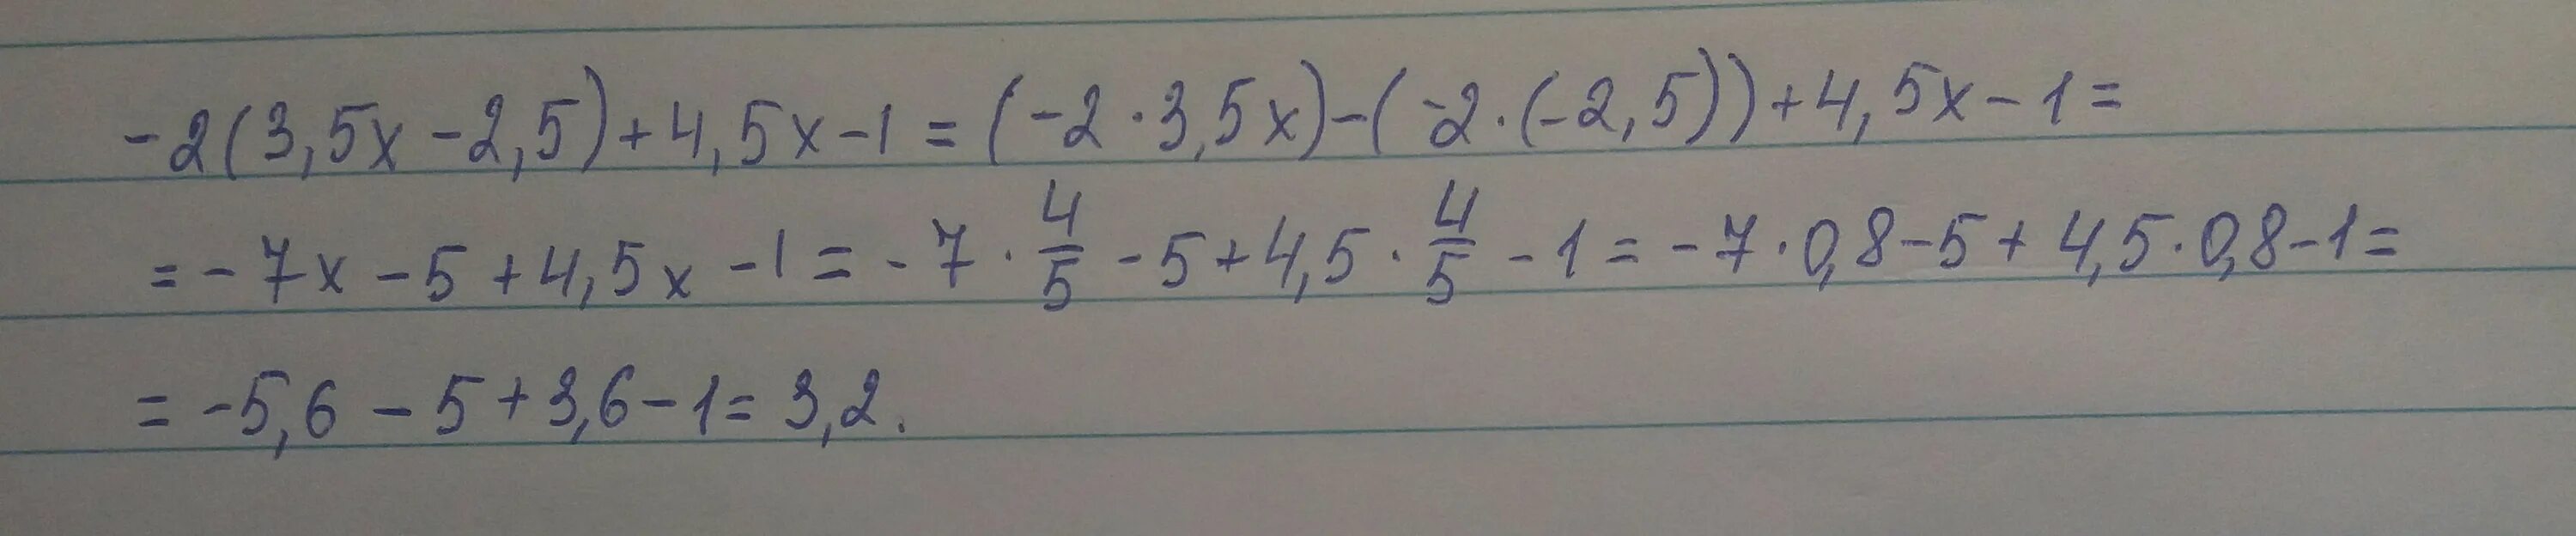 -2(3,5x-2,5)+4,5x-1=(-2·3,5x)-(-2·(-2,5))+4,5x-1=
=-7x-5+4,5x-1=-7·4/5-5+4,5·4/5-1=-7·0,8-5+4,5·0,8-1=
=-5,6-5+3,6-1=3,2.